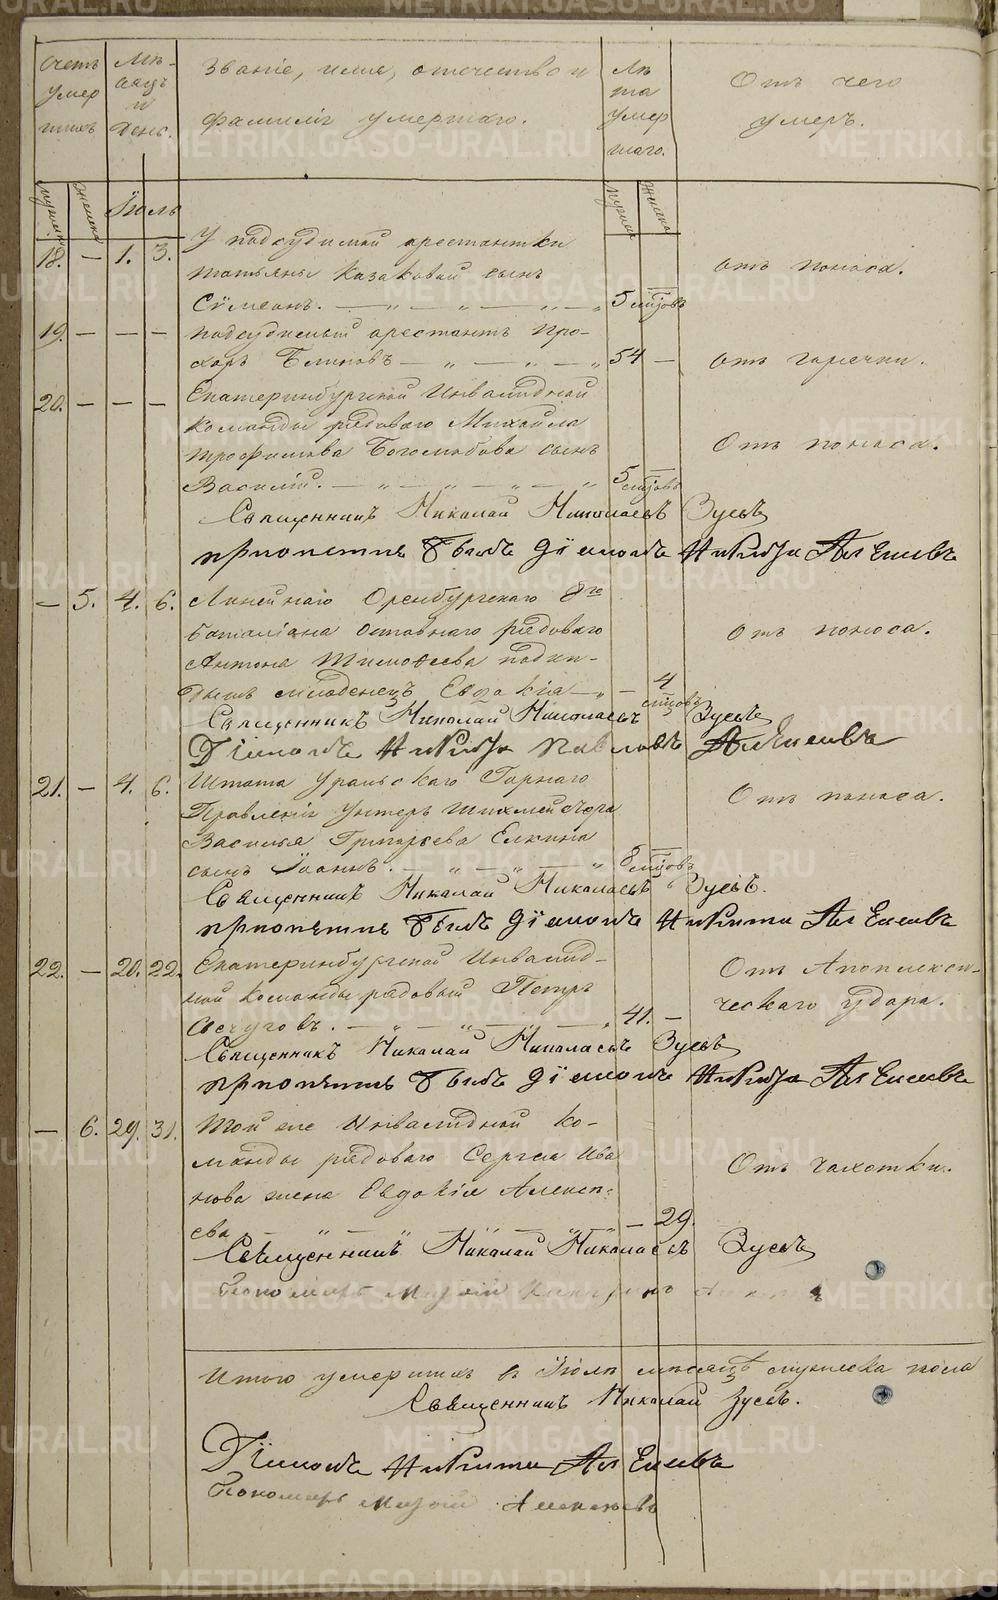 Счетъ умершихъ
Мѣсяцъ и день.
Званіе, имя, отчество и
фамилія умершаго.
Лѣта умершаго.
Отъ чего
умеръ.
мужеска
женска
Іюль
мужеска
женска
18. — 1. 3. У подсудимой арестантки
Татьяны Казаковой сынъ
Сѵмеонъ. 5 мѣсяцовъ
отъ поноса.
19. — — — подсудимый арестантъ Про-
хоръ Блиновъ 54 —
отъ горячки.
20. — — — Екатеринбургской Инвалидной
команды рядоваго Михайла
Трофимова Боголюбова сынъ
Василій. 5 мѣсяцовъ
Отъ поноса.
Священникъ Николай Николаевъ Зуевъ
причетникъ Дїаконъ Никита Алексеевъ
— 5. 4. 6. Линейнаго Оренбургскаго 8го
баталіона отставнаго рядоваго
Антона Тимофеева подки-
дышъ младенецъ Евдокія — 4 мѣсяцовъ
Отъ поноса.
Священникъ Николай Николаевъ Зуевъ
Дїаконъ Никита Алексеевъ
21. — 4. 6. Штата Уральскаго Горнаго
Правленія Унтеръ Шихмейстера
Василья Григорьева Елкина
сынъ Іоаннъ. 8 мѣсяцовъ
Отъ поноса.
Священникъ Николай Николаевъ Зуевъ.
Дїаконъ Никита Алексеевъ
22. — 20. 22. Екатеринбургской Инвалид-
ной команды рядовый Петръ
41. —
Отъ Апоплекси-
ческаго удара.
Священникъ Николай Николаевъ Зуевъ
Дїаконъ Никита Алексеевъ
— 6. 29. 31. Той же Инвалидной ко-
манды рядоваго Сергея Ива
нова жена Евдокія Алексе-
ева — 29.
Отъ чахотки.
Священникъ Николай Николаевъ Зуевъ
Пономарь
Итого умершихъ въ Іюлѣ мѣсяцѣ мужеска пола
Священникъ Николай Зуевъ.
Дїаконъ Никита Алексеевъ
Пономарь Алексеевъ
METRIKI.GASO-URAL.RU